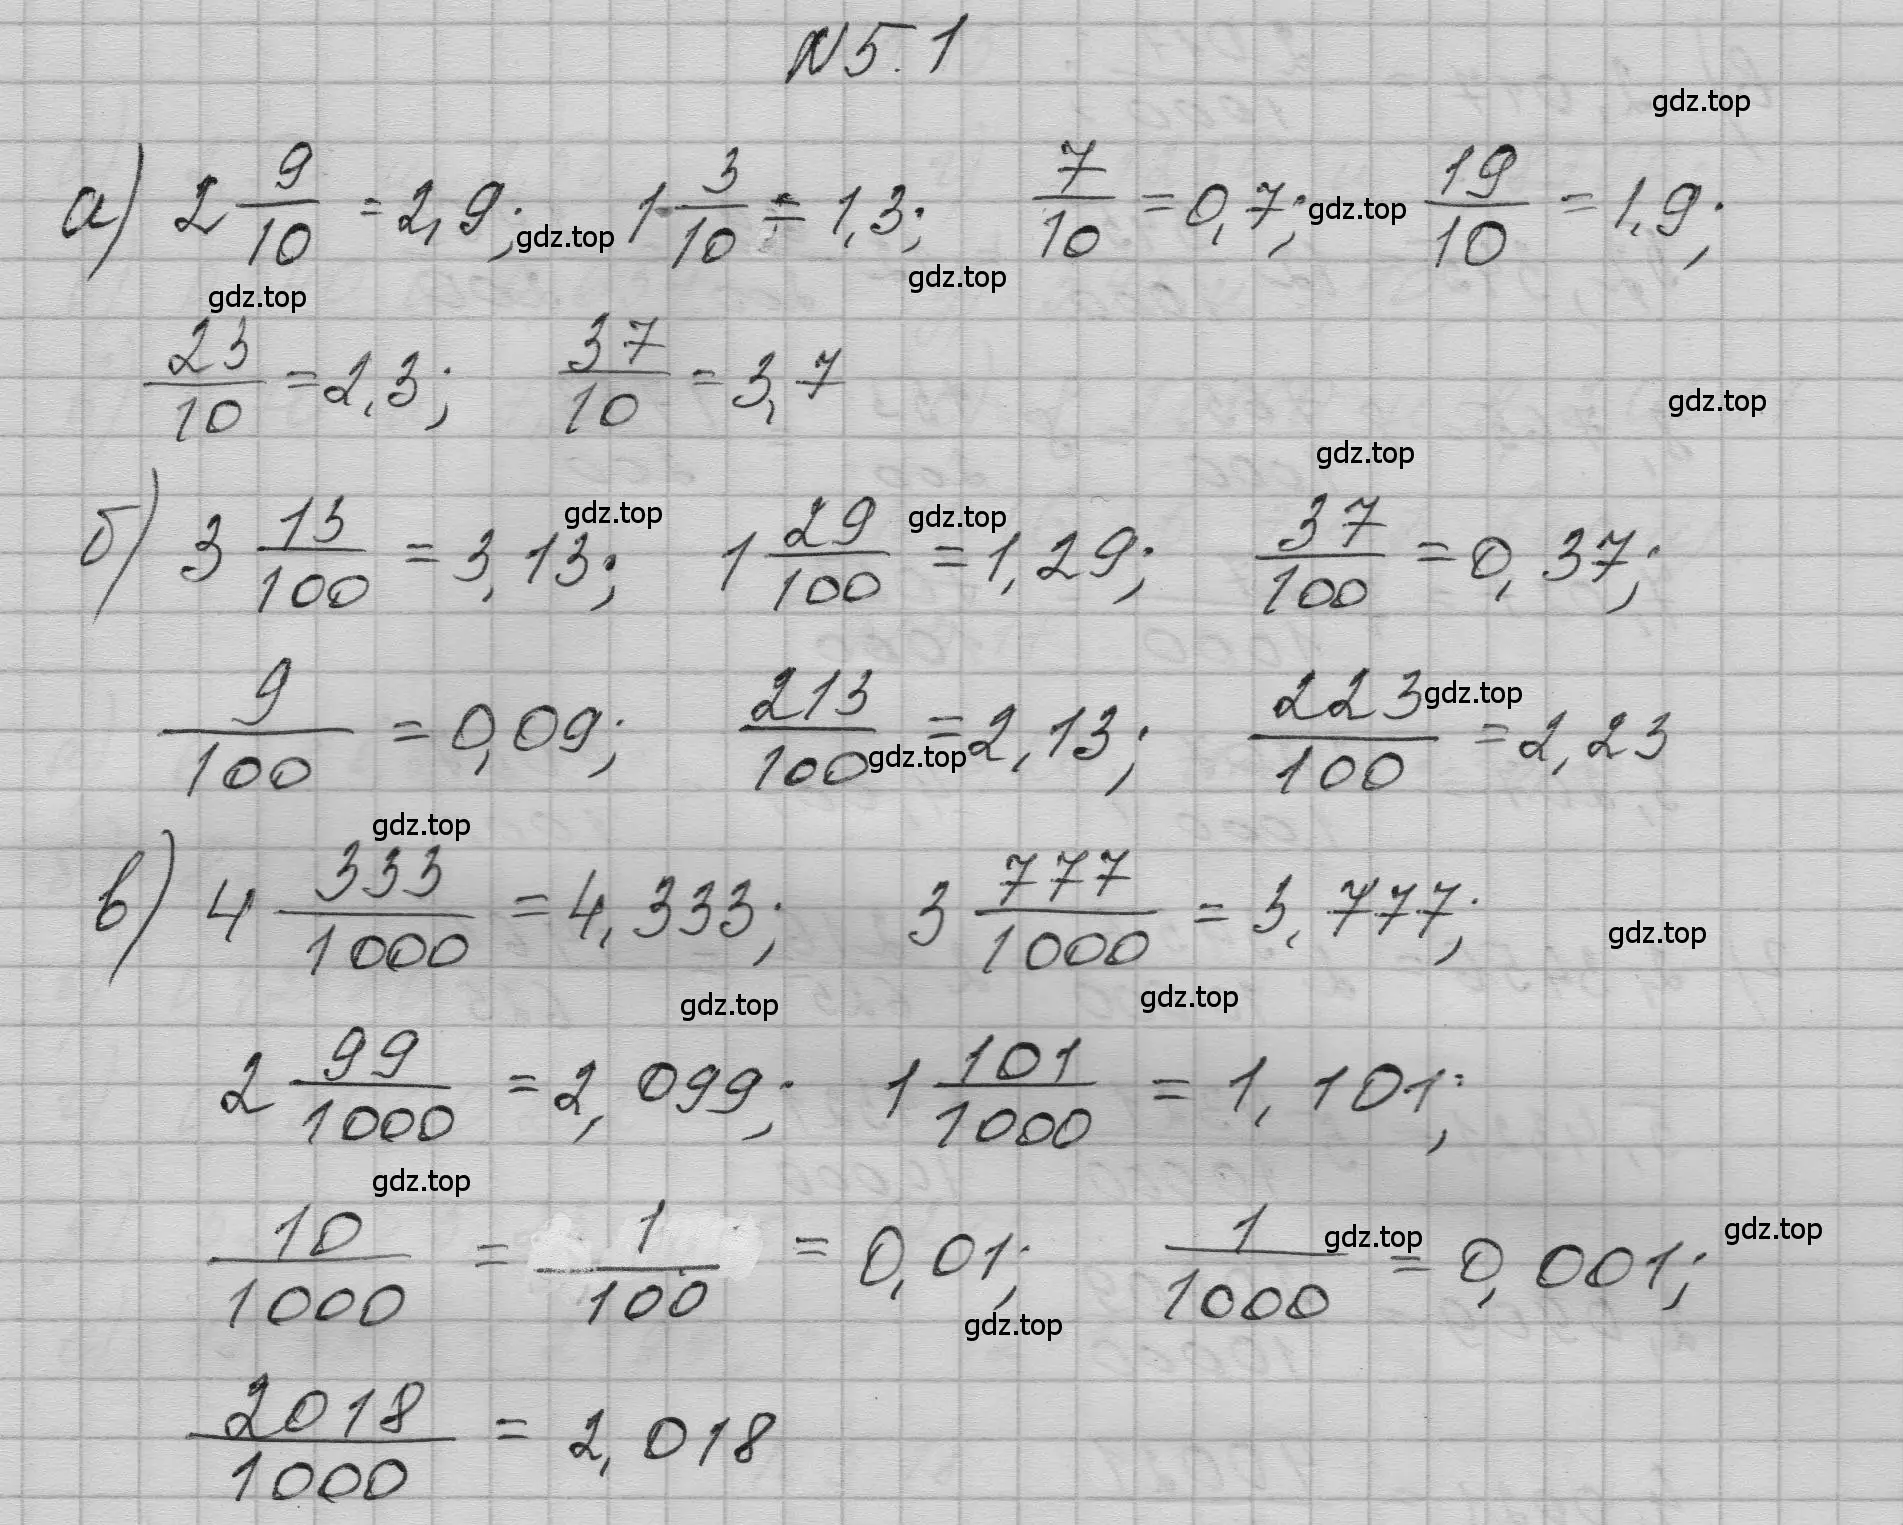 N5.1
gdz.top
а) 2 9/10 = 2,9; 1 3/10 = 1,3; 7/10 = 0,7; 19/10 = 1,9;
gdz.top gdz.top gdz.top gdz.top
23/10 = 2,3; 37/10 = 3,7
gdz.top
gdz.top
б) 3 13/100 = 3,13; 1 29/100 = 1,29; 37/100 = 0,37;
gdz.top gdz.top
9/100 = 0,09; 213/100 = 2,13; 223/100 = 2,23
gdz.top gdz.top
gdz.top
в) 4 333/1000 = 4,333; 3 777/1000 = 3,777;
gdz.top
gdz.top gdz.top
2 99/1000 = 2,099; 1 101/1000 = 1,101;
gdz.top
10/1000 = 1/100 = 0,01; 1/1000 = 0,001;
gdz.top gdz.top gdz.top
2018/1000 = 2,018